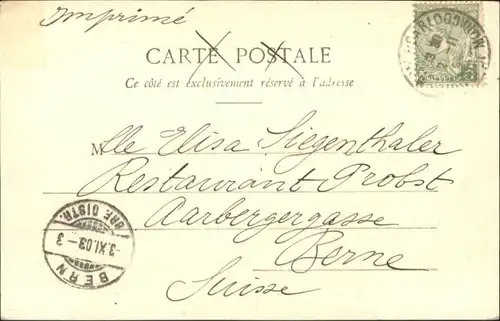 Imprimé
CARTE POSTALE
Ce côté est exclusivement réservé à l'adresse
Mlle Elisa Siegenthaler
Restaurant Probst
Aarbergergasse
Berne
Suisse
BERN
3.XI.03-3
BRF. DISTR.